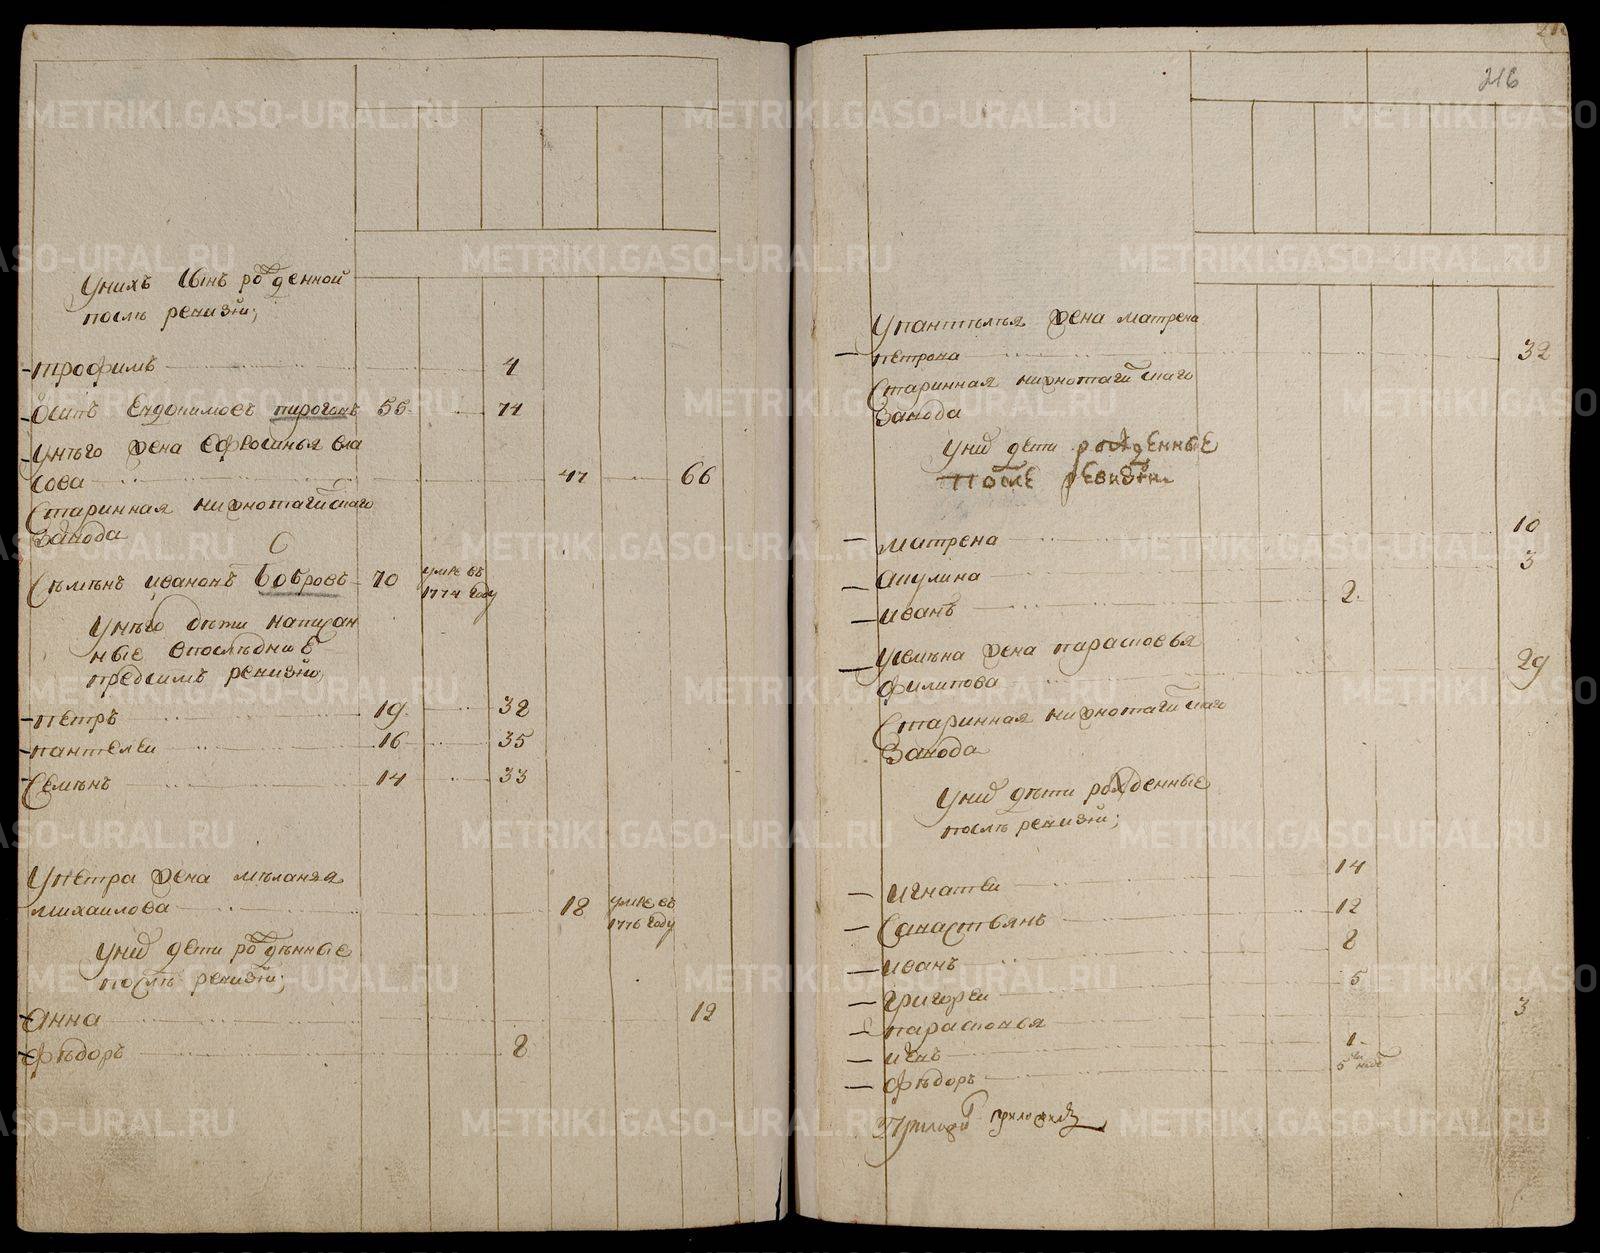 унихъ сынъ рожденной
послѣ ревизіи;
трофимъ 4
Осипъ Евдокимовъ пироговъ 55 74
унѣго жена ефросинья вла
сова 47 66
Старинная нижнотагилскаго
Завода
Сѣмѣнъ ивановъ Бобровъ 70 умре въ
1774 году
унѣго дѣти написан
ные впослѣднюю
предсимъ ревизію,
петръ 19 32
пантелеи 16 35
Семѣнъ 14 33
упетра жена мѣланья
михаилова 18 умре въ
1776 году
уних дети рождѣнные
послѣ ревизіи;
Анна 12
Фѣдоръ 8
216
упантѣлѣя жена матрена
петрова 32
Старинная нижнотагилскаго
Завода
уних дети рожденные
после ревизіи
матрена 10
акулина 3
иванъ 2
усемѣна жена парасковья
филипова 29
Старинная нижнотагилскаго
Завода
уних дѣти рожденные
послѣ ревизіи;
игнатеи 14
Савастьянъ 12
иванъ 8
григореи 5
парасковья 3
1
Фѣдоръ 5 недѣ